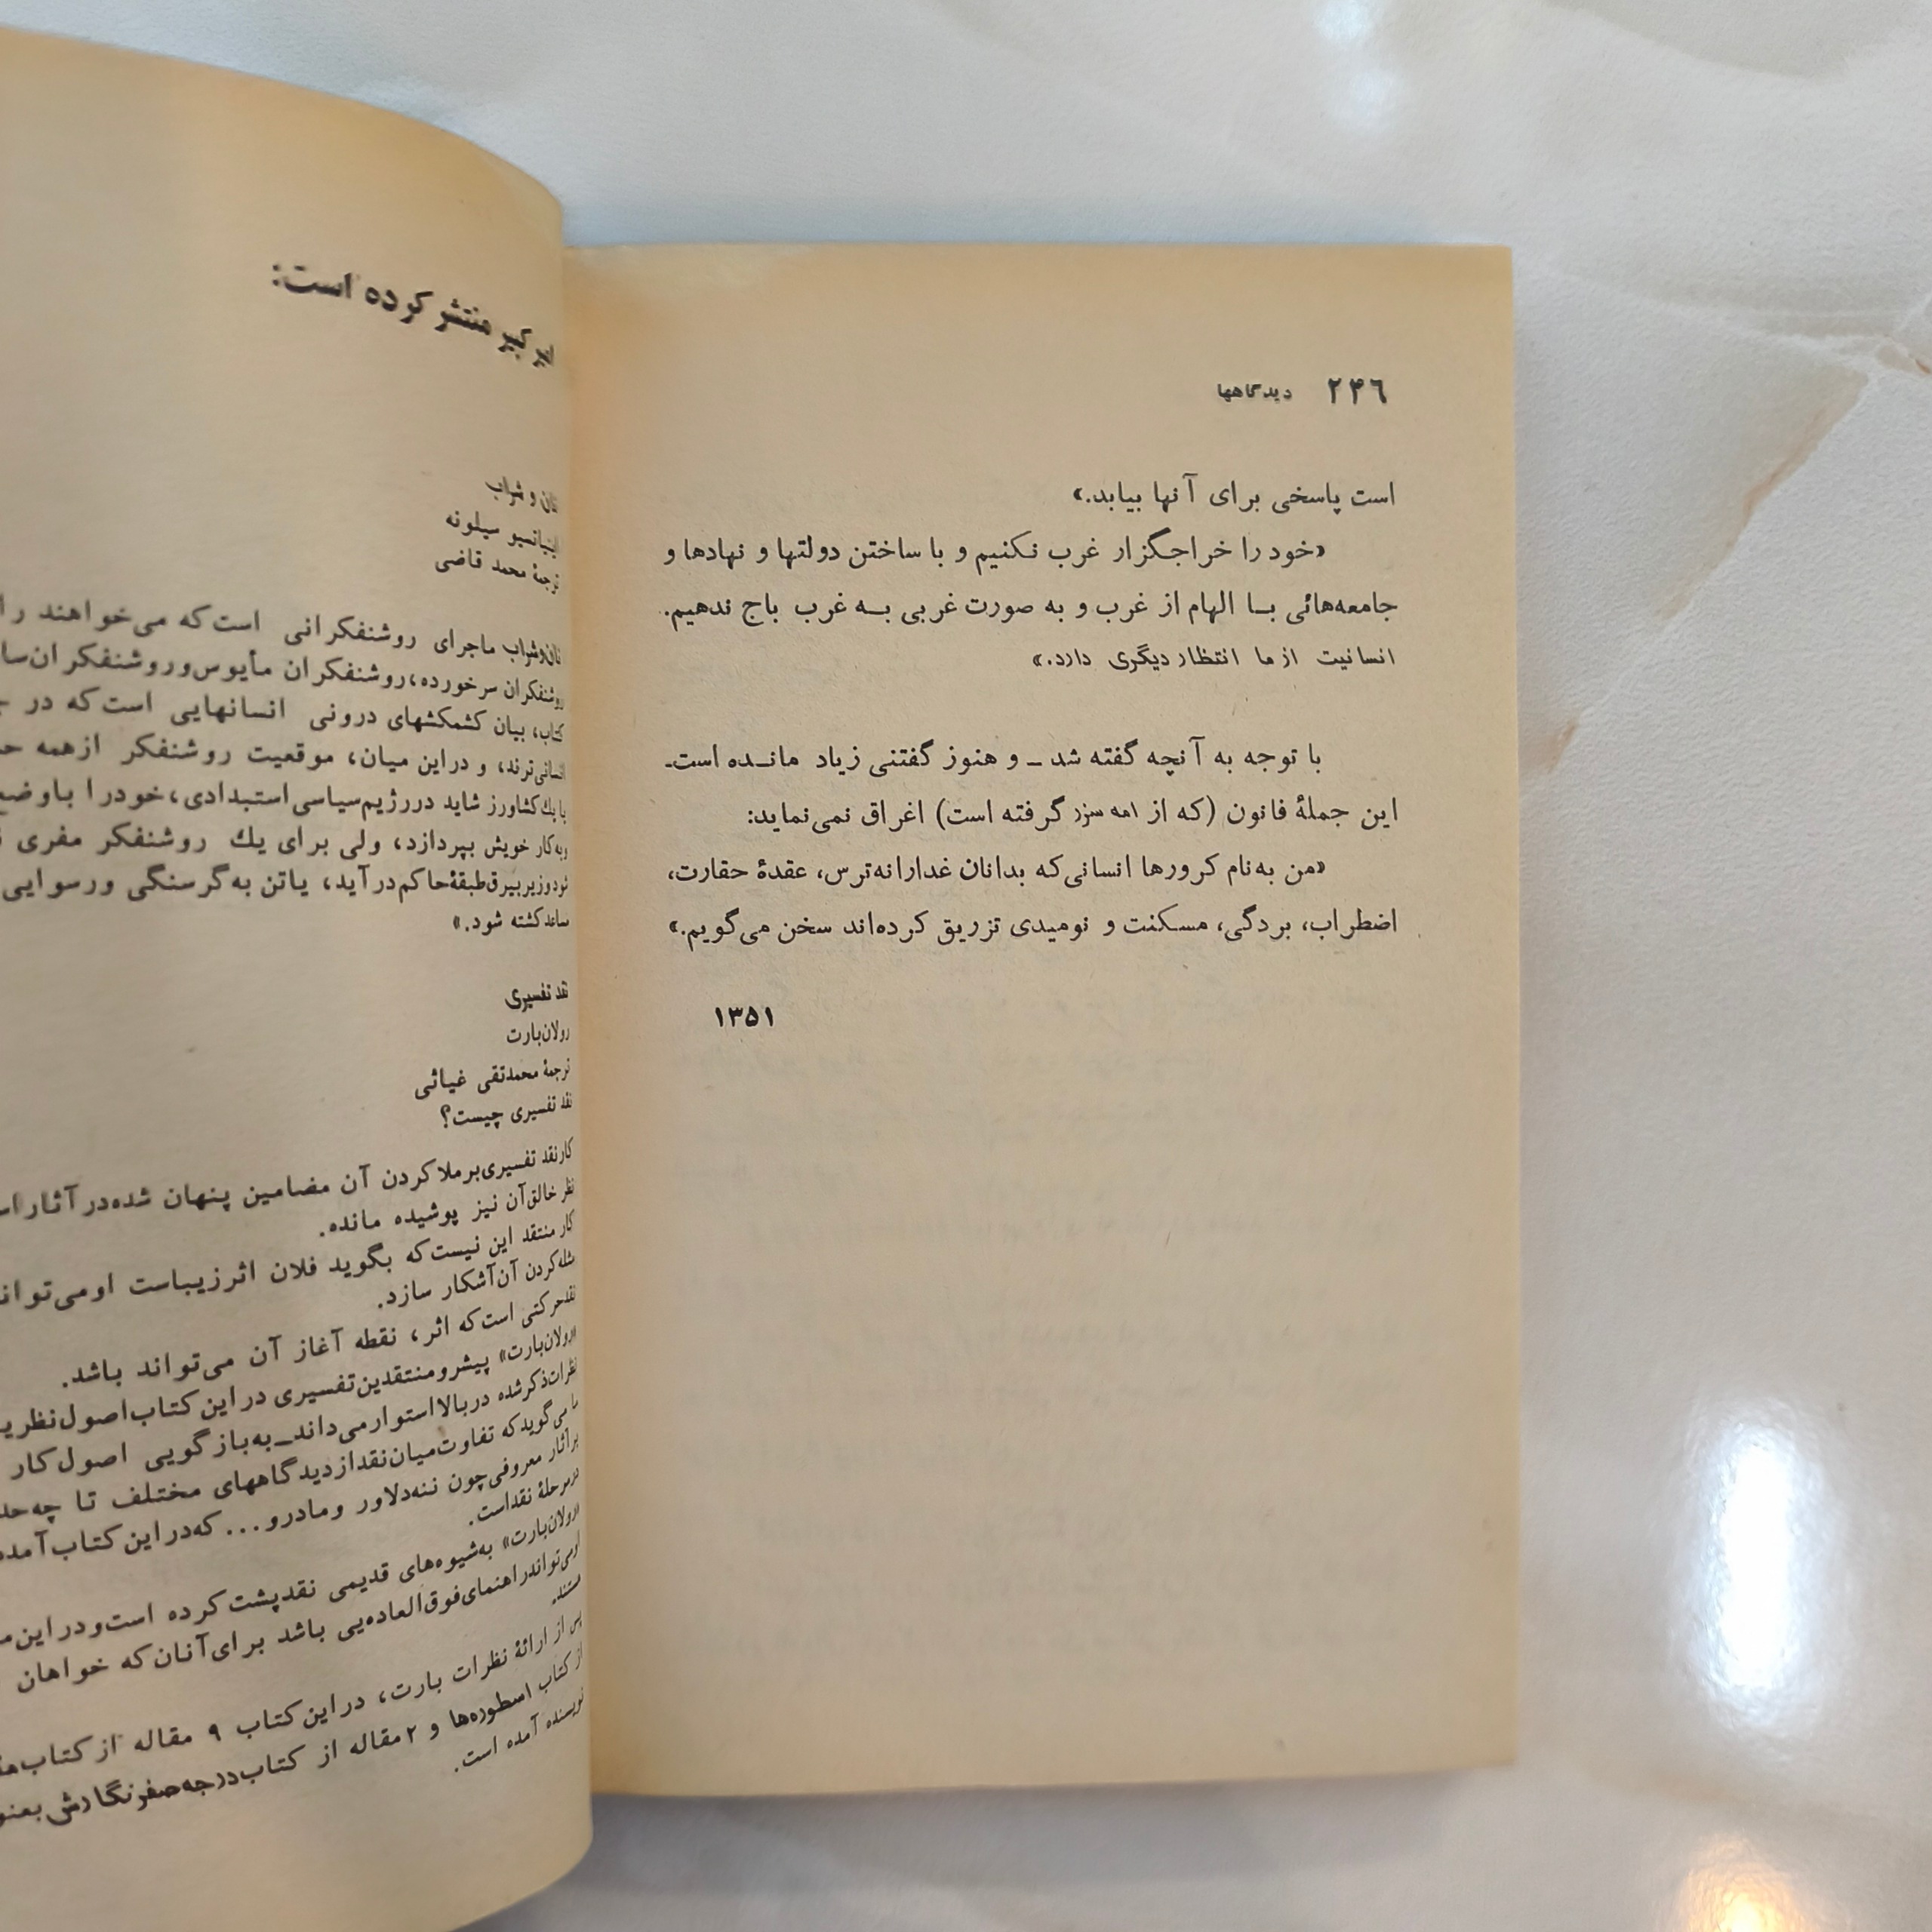 ۲۴۶ دیدگاهها
است پاسخی برای آنها بیابد.»
«خود را خراجگزار غرب نکنیم و با ساختن دولتها و نهادها و
جامعه‌هائی بــا الهام از غرب و به صورت غربی بــه غرب باج ندهیم.
انسانیت از ما انتظار دیگری دارد.»
با توجه به آنچه گفته شد ــ و هنوز گفتنی زیاد مانــده است ــ
این جملهٔ فانون (که از امه سزر گرفته است) اغراق نمی‌نماید:
«من به‌نام کرورها انسانی‌که بدانان غدارانه‌ترس، عقدهٔ حقارت،
اضطراب، بردگی، مسکنت و نومیدی تزریق کرده‌اند سخن می‌گویم.»
۱۳۵۱
کبیر منتشر کرده است:
نان و شراب
اینیاتسیو سیلونه
ترجمهٔ محمد قاضی
نان‌وشراب ماجرای روشنفکرانی است‌که می‌خواهند
روشنفکران سرخورده،روشنفکران مأیوس‌وروشنفکران
کتاب، بیان کشمکشهای درونی انسانهایی است‌که در
انسانی‌ترند، و دراین میان، موقعیت روشنفکر ازهمه
بایك‌کشاورز شاید دررژیم‌سیاسی‌استبدادی،خودرا
وبه‌کار خویش بپردازد، ولی برای یك روشنفکر مفری
شودوزیربیرق‌طبقهٔ‌حاکم‌درآید، یاتن به‌گرسنگی ورسوایی
کشته شود.»
نقد تفسیری
رولان‌بارت
ترجمهٔ محمدتقی غیاثی
نقد تفسیری چیست؟
کارنقد تفسیری‌برملاکردن آن مضامین پنهان شده‌درآثار
نظر خالق‌آن نیز پوشیده مانده.
کار منتقد این نیست‌که بگوید فلان اثرزیباست
مثله‌کردن آن‌آشکار سازد.
نقدحرکتی است‌که اثر، نقطه آغاز آن می‌تواند باشد.
«رولان‌بارت» پیشرومنتقدین‌تفسیری دراین‌کتاب‌اصول
نظرات‌ذکرشده دربالااستوارمی‌داند_به‌بازگویی اصول‌کار
می‌گویدکه تفاوت‌میان‌نقدازدیدگاههای مختلف تا
برآثار معروفی‌چون ننه‌دلاور ومادرو... که‌دراین‌کتاب
درمرحلهٔ نقداست.
«رولان‌بارت» به‌شیوه‌های قدیمی نقدپشت‌کرده است‌ودر
اومی‌تواندراهنمای‌فوق‌العاده‌یی باشد برای‌آنان‌که خواهان
هستند.
پس از ارائهٔ نظرات بارت، دراین‌کتاب ۹ مقاله از
از کتاب اسطوره‌ها و ۲ مقاله از کتاب‌درجه‌صفرنگارش
نویسنده آمده است.